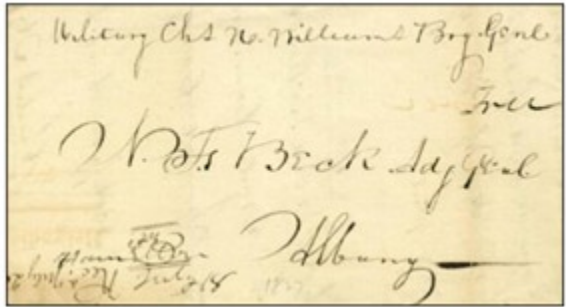 Military Cht N. Williams Brg. Genl
Free
N. F. Beck Adj Genl
Albany
July 18